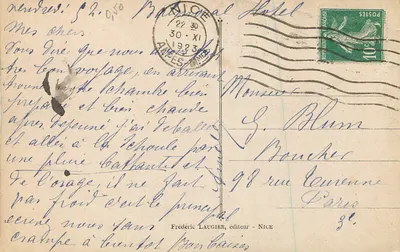 Vendredi 5 h.
Mes chers
Vous dire que nous avons fait
très bon voyage, en arrivant
trouvé une chambre bien
préparé et bien chaude
après déjeuné j'ai déballer
et allée à la Schoule par
une pluie battante et
de l'orage, il ne fait
pas froid c'est le principal
écrivé nous sans
à bientôt Bon baiser
Hotel
NICE
30 - XI
1923
ALPES-MMES
POSTES
10
Monsieur
G. Blum
Boucher
98 rue Turenne
Paris
3e
Frédéric LAUGIER, éditeur - NICE